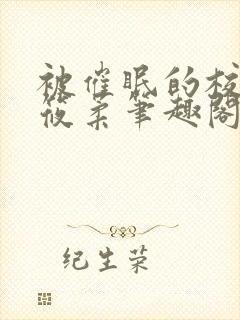 被催眠的校
筱柔笔趣阁
纪生荣